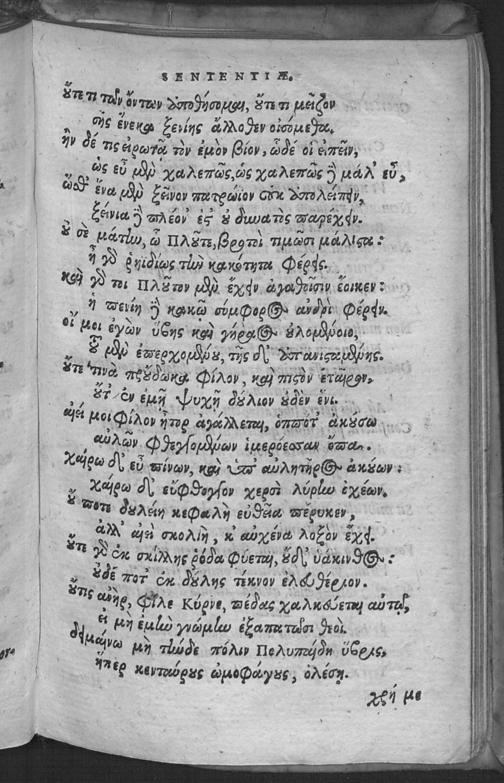 SENTENTIÆ.
οὔτε τι τῶν ὄντων ἀποθήσομαι, οὔτε τι μεῖζον
σῆς ἕνεκα ξενίης ἄλλοθεν οἰσόμεθα.
ἢν δέ τις εἰρωτᾷ τὸν ἐμὸν βίον, ὧδέ οἱ εἰπεῖν,
ὡς εὖ μὲν χαλεπῶς, ὡς χαλεπῶς δὲ μάλ' εὖ,
ὥσθ' ἕνα μὲν ξεῖνον πατρώϊον οὐκ ἀπολείπειν,
ξείνια δὲ πλέον' ἐς οὐ δυνατὸς παρέχειν.
οὔ σε μάτην, ὦ Πλοῦτε, βροτοὶ τιμῶσι μάλιστα:
ἦ γὰρ ῥηιδίως τὴν κακότητα φέρεις.
καὶ γάρ τοι Πλοῦτον μὲν ἔχειν ἀγαθοῖσιν ἔοικεν:
ἡ πενίη δὲ κακῷ σύμφορος ἀνδρὶ φέρειν.
οἴ μοι ἐγὼν ἥβης καὶ γήραος οὐλομένοιο,
τοῦ μὲν ἐπερχομένου, τῆς δ' ἀπανισταμένης.
οὔτε τινὰ προὔδωκα φίλον, καὶ πιστὸν ἑταῖρον,
οὔτ' ἐν ἐμῇ ψυχῇ δούλιον οὐδὲν ἔνι.
αἰεί μοι φίλον ἦτορ ἀγάλλεται, ὁππότ' ἀκούσω
αὐλῶν φθεγγομένων ἱμερόεσσαν ὄπα.
χαίρω δ' εὖ πίνων, καὶ ὑπ' αὐλητῆρος ἀκούων:
χαίρω δ' εὔφθογγον χερσὶ λύρην ὀχέων.
οὔ ποτε δουλείη κεφαλὴ εὐθεῖα πέφυκεν,
ἀλλ' αἰεὶ σκολιὴ, κ' αὐχένα λοξὸν ἔχει.
οὔτε γὰρ ἐκ σκίλλης ῥόδα φύεται, οὐδ' ὑάκινθος:
οὐδέ ποτ' ἐκ δούλης τέκνον ἐλευθέριον.
οὗτις ἀνὴρ, φίλε Κύρνε, πέδας χαλκεύεται αὑτῷ,
εἰ μὴ ἐμὴν γνώμην ἐξαπατῶσι θεοί.
δειμαίνω μὴ τήνδε πόλιν Πολυπαΐδη ὕβρις,
ἥπερ κενταύρους ὠμοφάγους, ὀλέσῃ.
χρή με